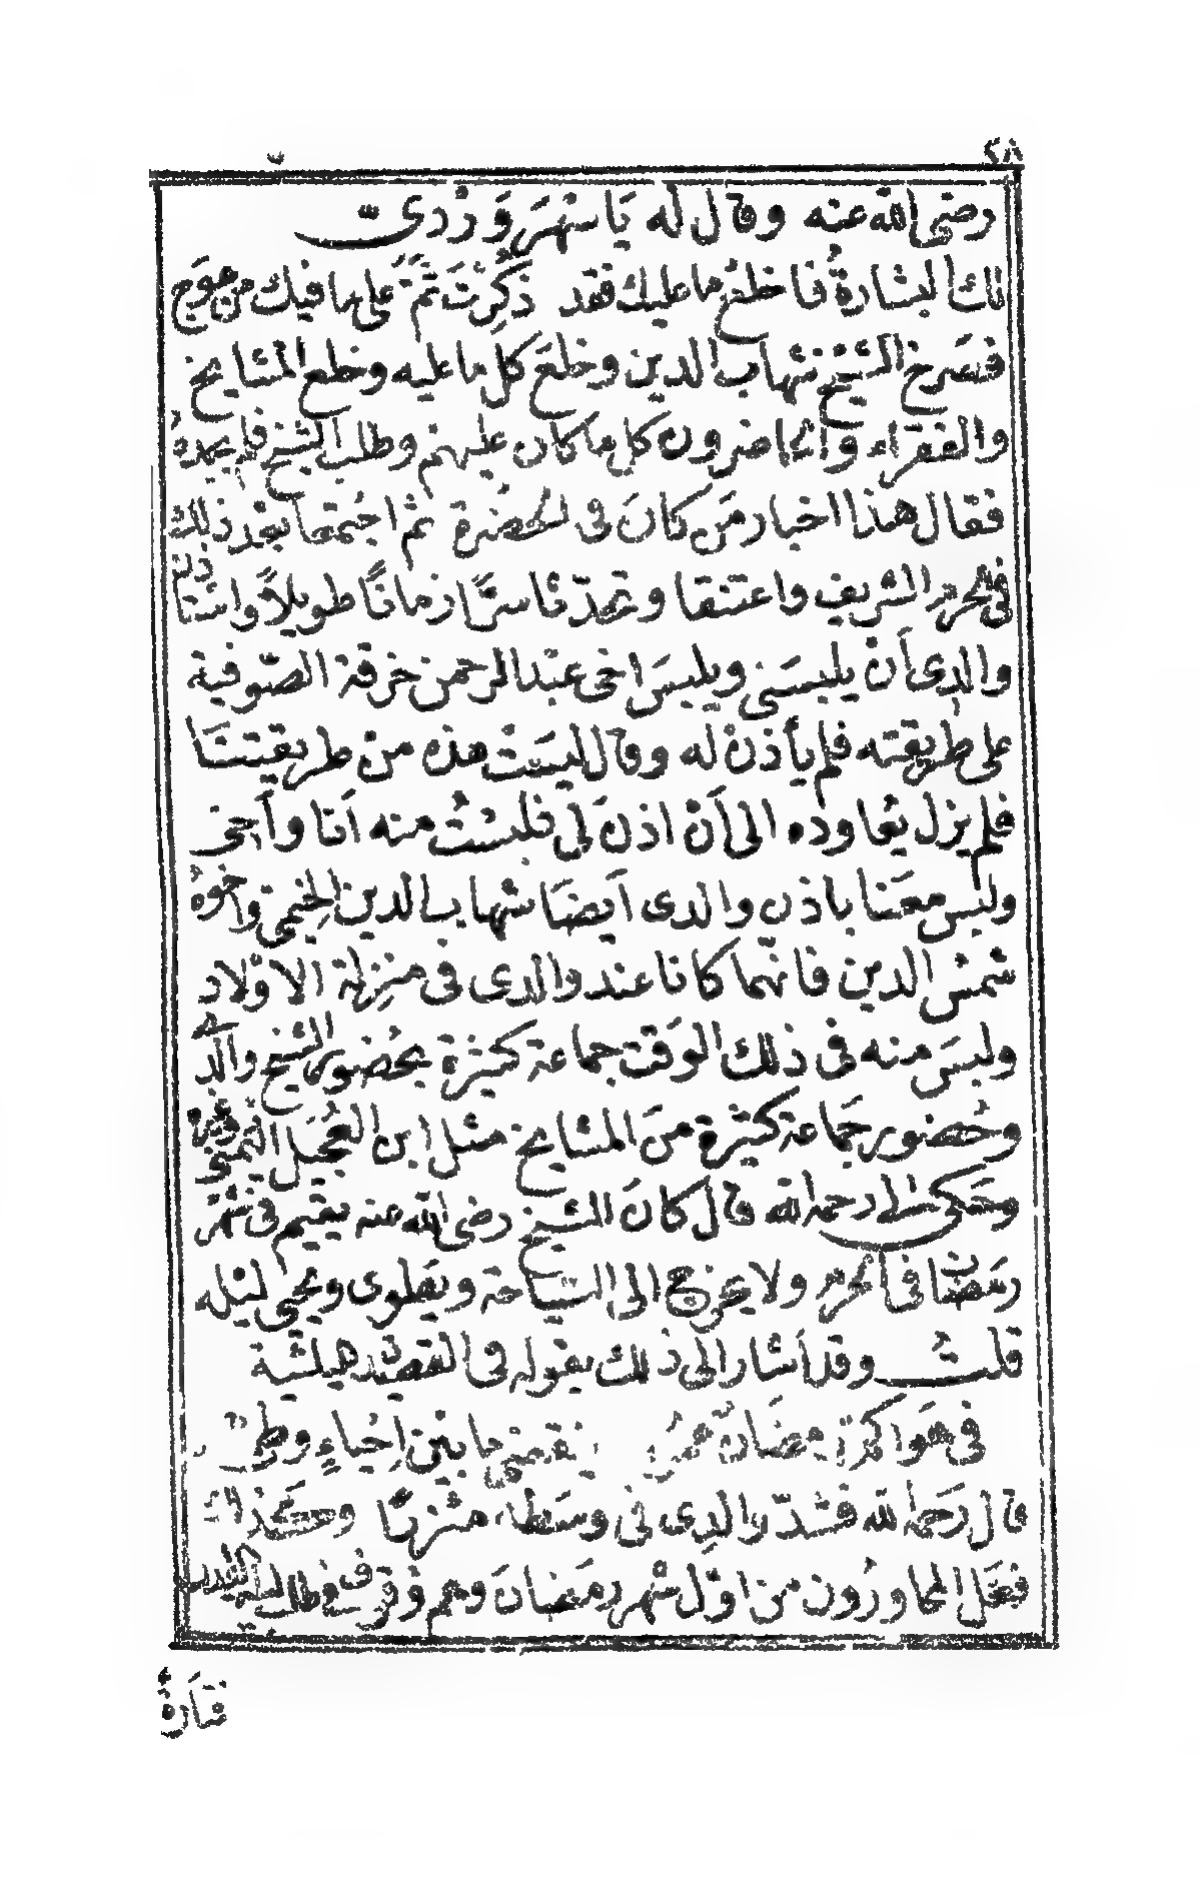 ٢٨
رضى الله عنه وقال له يَا سُهْرَوَرْدِى
لك البشارةُ فاخلعْ ما عليك فقد ذُكِرْتَ ثَمَّ على ما فيك من عِوَج
فصَرخ الشيخ شهاب الدين وخلعَ كل ما عليه وخلع المشايخ
والفقراء والحاضرون كل ما كان عليهم وطلب الشيخ فلم يجده
فقال هذا اخبار مَن كانَ فى الحضْرة ثم اجتمعا بعْد ذلك
فى الحرم الشريف واعتنقا وتحدّثا سرًّا زمانًا طويلاً واستأذن
والدى أنْ يلبسَنى ويلبسَ اخى عبْد الرحمن خرقة الصّوفية
على طريقته فلم يأذنْ له وقال ليسَتْ هذه منْ طريقتنَا
فلم يزل يُعاوده الى أنْ اذن لى فلبسْتُ منه أنا وأخى
ولبس معَنا باذن والدى أيضَا شهاب الدين الخيمى واخوهُ
شمسُ الدين فانّهما كانا عند والدى فى منزلة الاوْلاد
ولبسَ منه فى ذلك الوَقت جماعة كثيرة بحُضور الشيخ والدى
وحُضور جَماعة كثيرة منَ المشايخ مثل ابن العُجَيل اليمنى وغيره
وحَكى لى رحمه الله قال كانَ الشيخ رضى الله عنه يقيم فى شهْر
رمَضان فى الحرم ولا يخرج الى السّياحة ويَطوى ويحيى ليْله
قلتُ وقد أشار الى ذلك بقوله فى القصيد هيلثية
فى هَواكم رَمضَان عُمرُه ينقضى ما بَيْن إحْيَاءٍ وطى
قال رَحمه الله فشدّ والدِى فى وسَطه مئزرًا وحكذلك
ففعَل المجاورُون من اوّل شهْر رمَضانَ وهم فوق وطلب ليلة القدر
فتَارةً